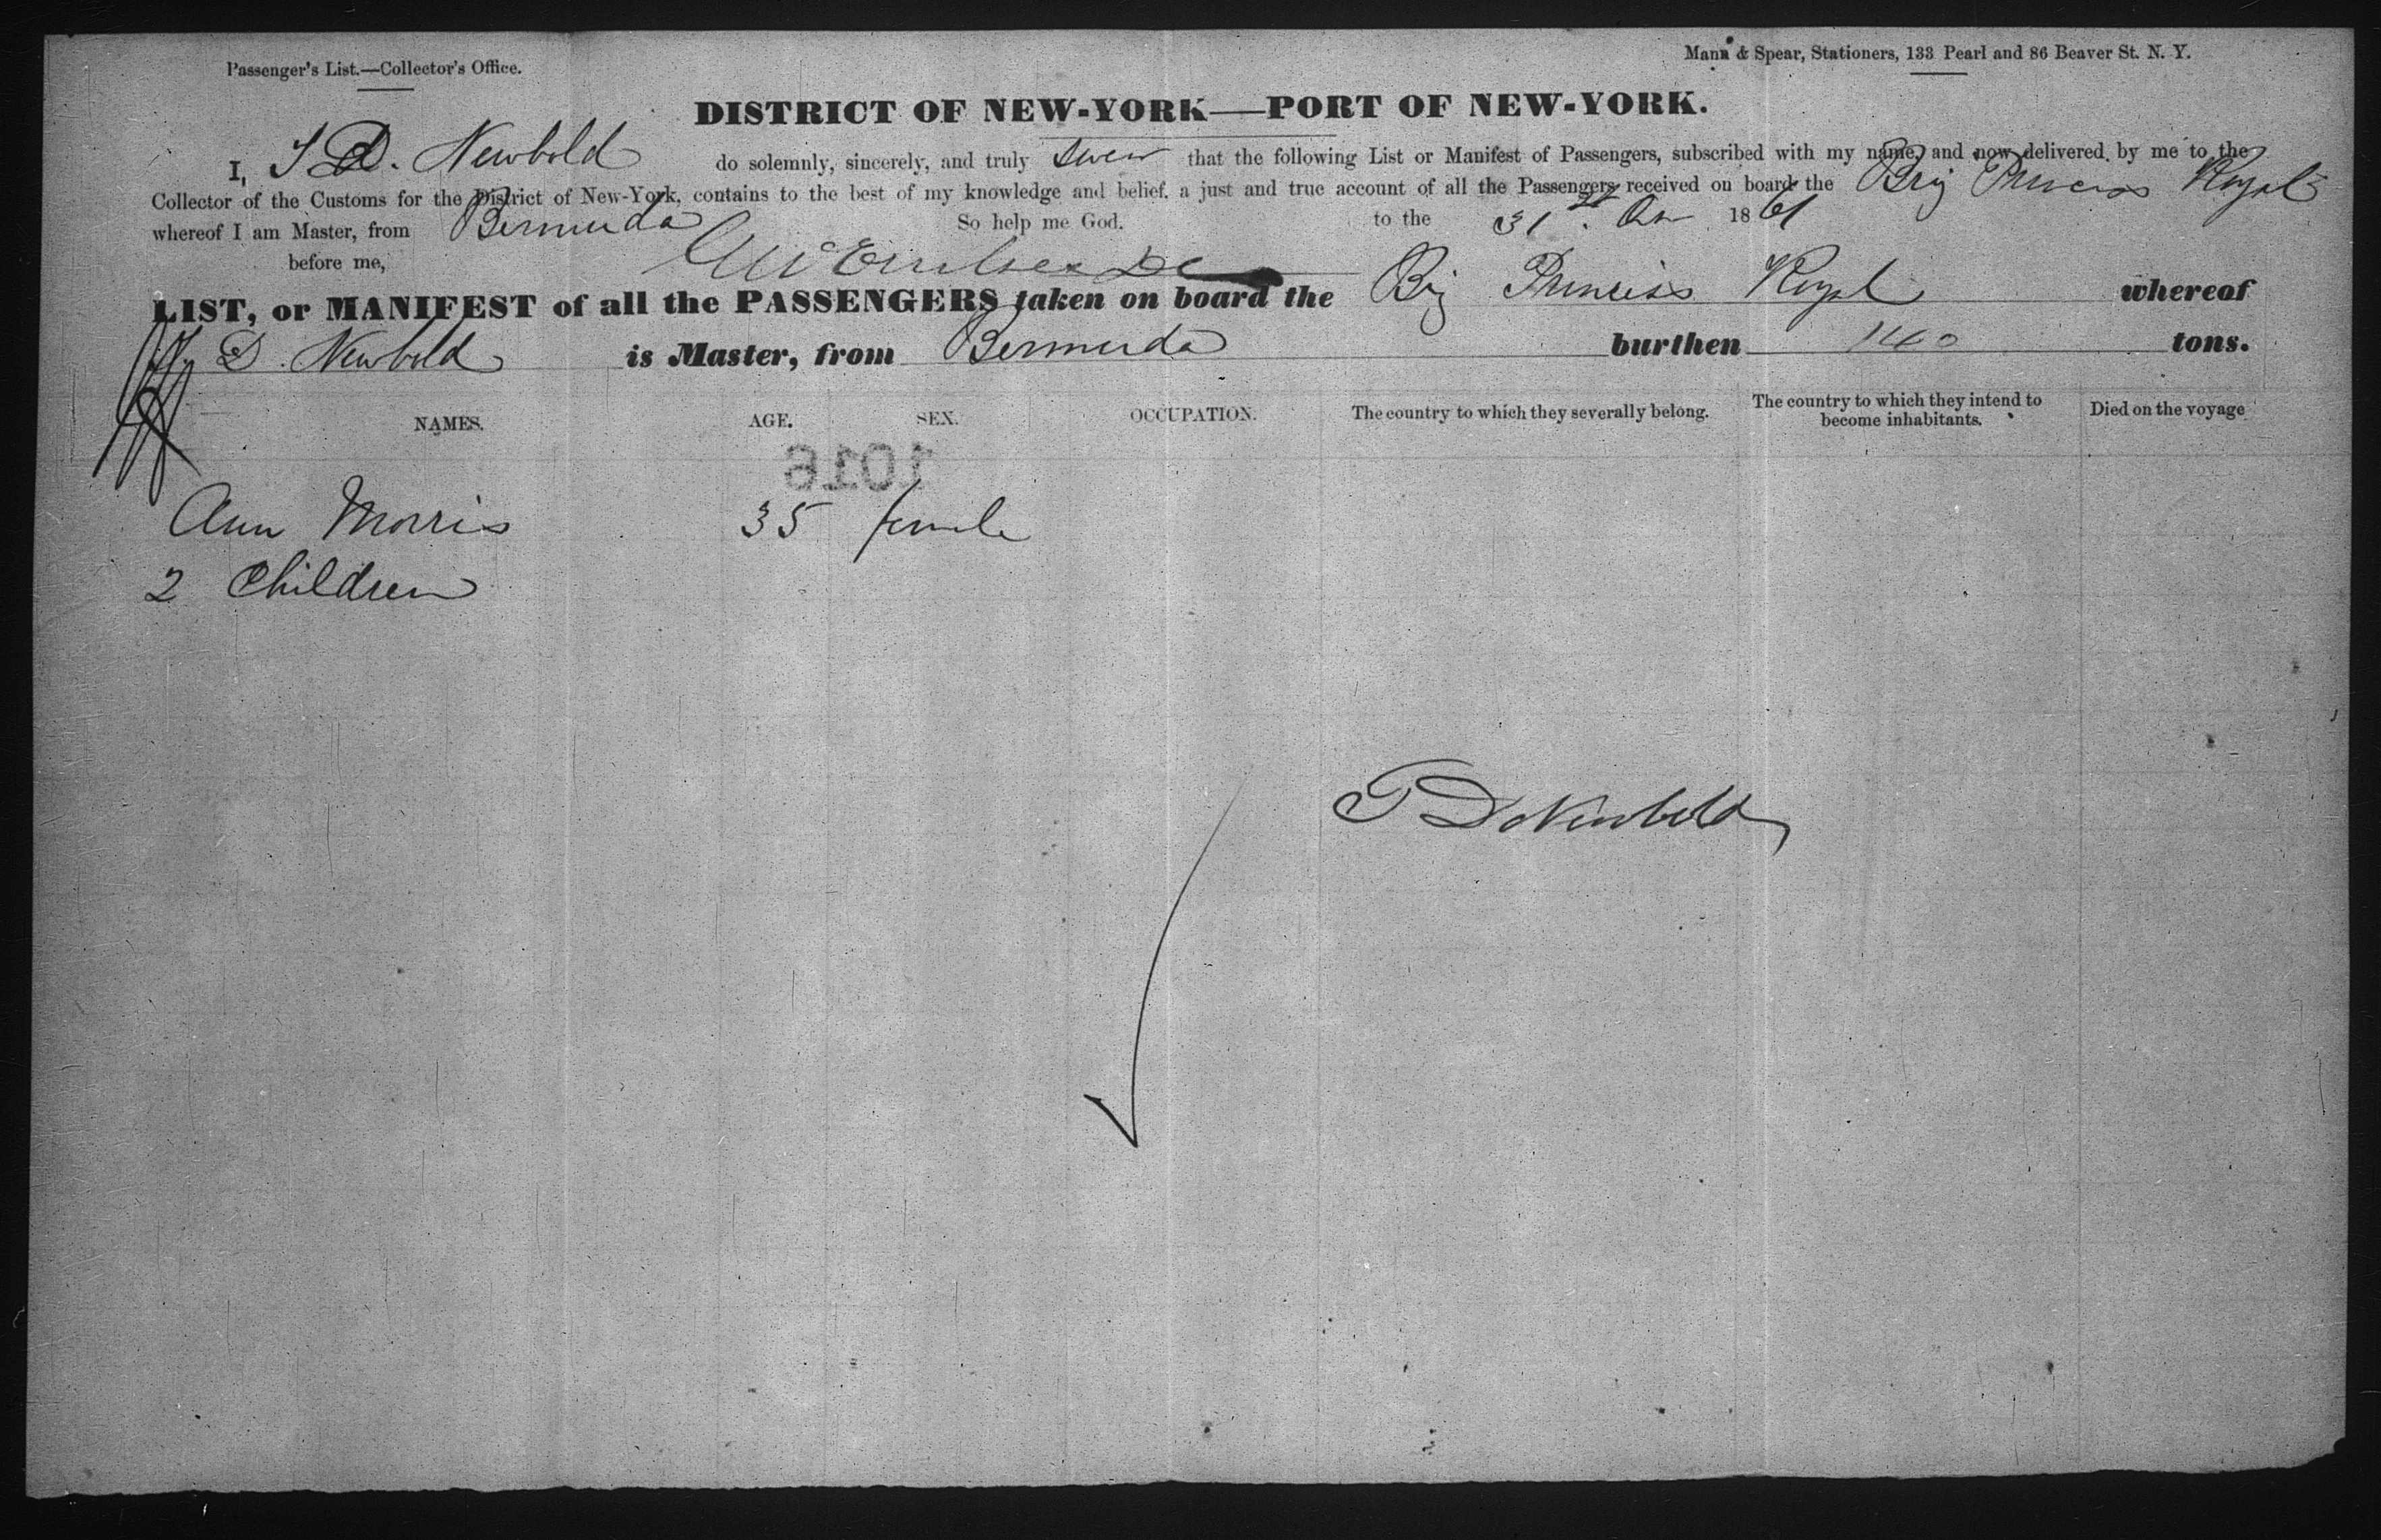 Passenger's List.—Collector's Office.
Mann & Spear, Stationers, 133 Pearl and 86 Beaver St. N. Y.
DISTRICT OF NEW-YORK—PORT OF NEW-YORK.
I, D. Newbold do solemnly, sincerely, and truly swear that the following List or Manifest of Passengers, subscribed with my name, and now delivered by me to the
Collector of the Customs for the District of New-York, contains to the best of my knowledge and belief, a just and true account of all the Passengers received on board the Brig Princess Royal
whereof I am Master, from Bermuda So help me God. to the 31st 1861
before me,
LIST, or MANIFEST of all the PASSENGERS taken on board the Brig Princess Royal whereof
D. Newbold is Master, from Bermuda burthen 160 tons.
NAMES. AGE. SEX. OCCUPATION. The country to which they severally belong. The country to which they intend to become inhabitants. Died on the voyage
1016
Ann Morris 35 female
2 Children
T D Newbold